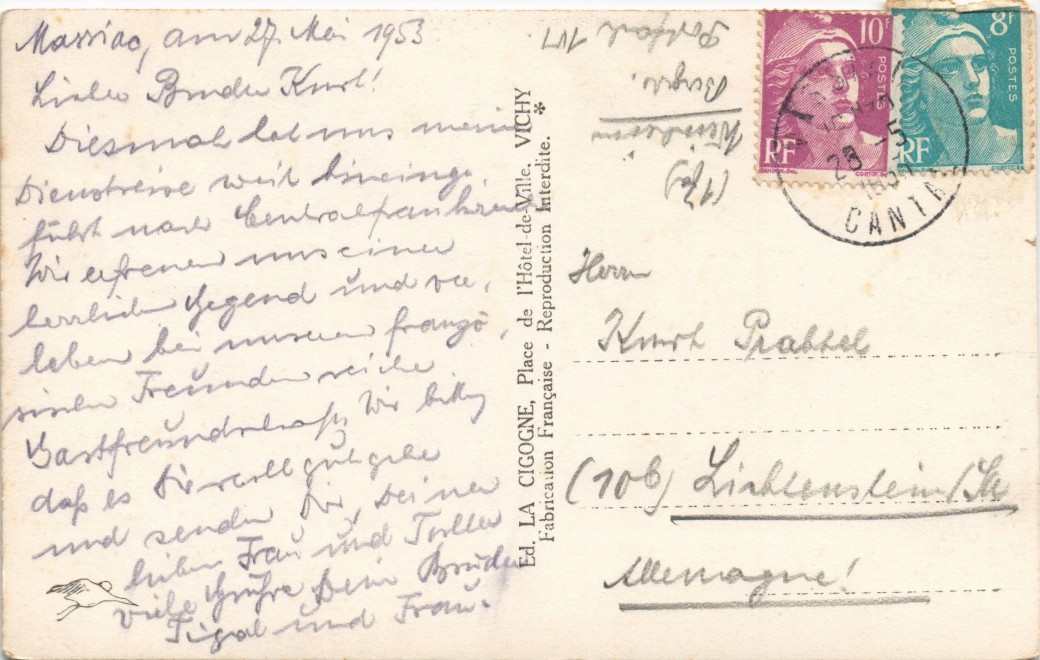 Massiac, am 27. Mai 1953
Lieber Bruder Kurt!
Diesmal hat uns meine
Dienstreise weit hineinge-
führt nach Centralfrankreich
Wir erfreuen uns einer
herrlichen Gegend und
erleben bei unseren französi-
sischen Freunden reiche
Gastfreundschaft. Wir
daß es Dir recht gut gehe
und senden Dir, Deiner
lieben Frau und Tochter
viele Grüße Dein Bruder
und Frau.
Ed. LA CIGOGNE, Place de l'Hôtel-de-Ville, VICHY
Fabrication Française - Reproduction Interdite. *
Postfach 101
10F
POSTES
RF
8F
POSTES
RF
28 -5
CANTAL
Herrn
Kurt
(10b) Lichtenstein/Sa
Allemagne!